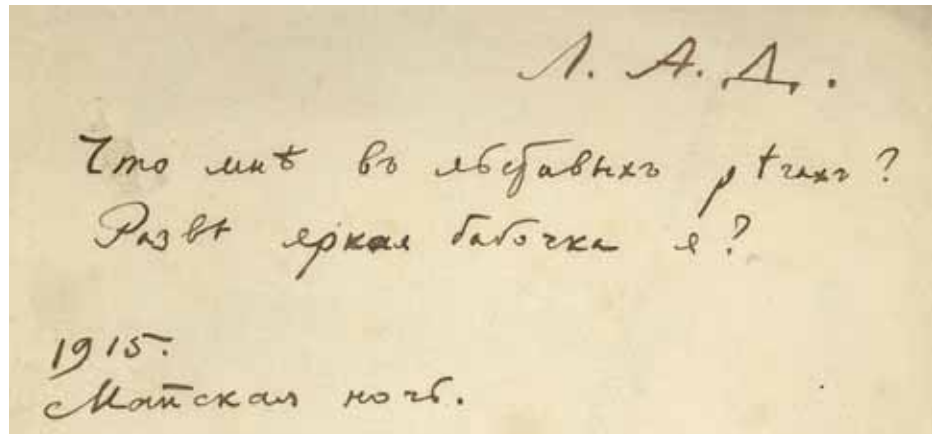 Л. А. Д.
Что мнѣ въ льстивыхъ рѣчахъ?
Развѣ яркая бабочка я?
1915.
Майская ночь.